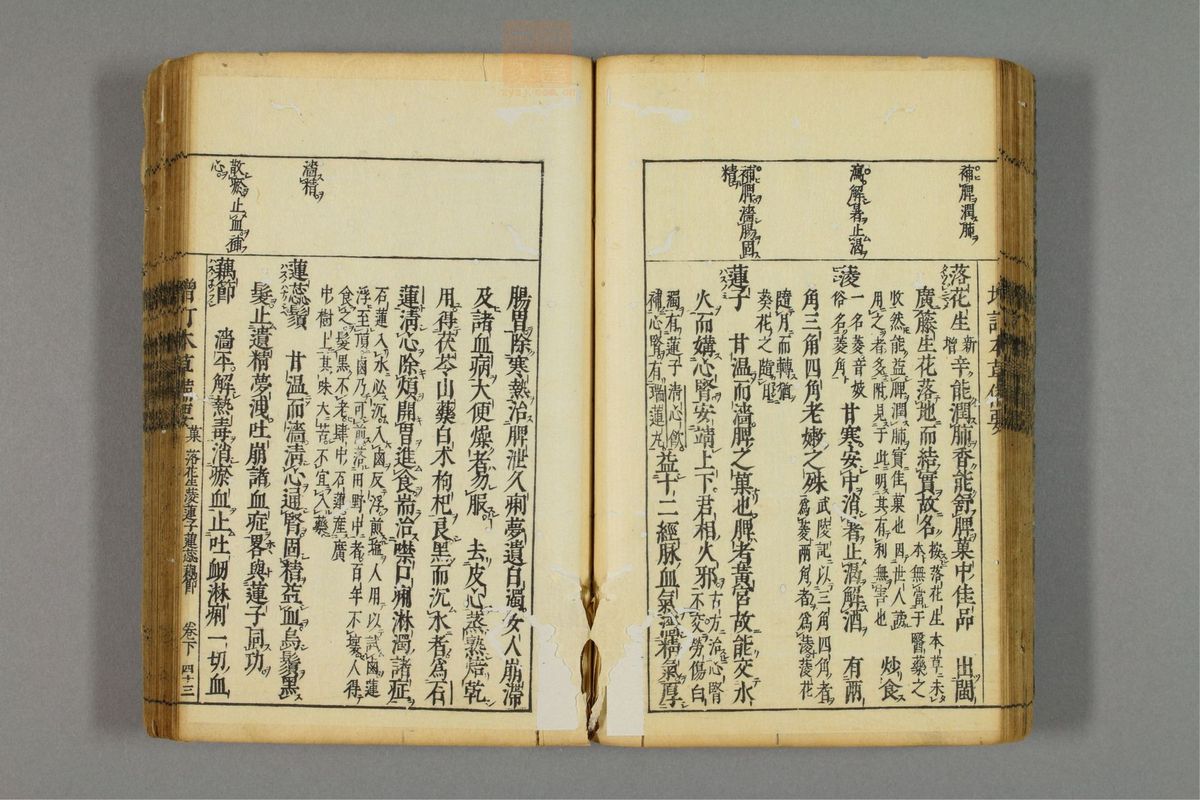 補脾潤肺
瀉解暑止渴
補脾濇腸固
精
落花生新增辛能潤肺香能舒脾菓中佳品　出閩
廣藤生花落地而結實故名按落花生本草未
收然能益脾潤肺實佳菓也因世人謊
本無當于醫藥之
用之者多附見于此明其有利無害也
炒食
蔆一名菱音妓
俗名菱角
甘寒安中消暑止渴解酒　有兩
角三角四角老嫩之殊武陵記以三角四角者
爲芰兩角者爲蔆蔆花
隨月而轉猶
葵花之隨日
蓮子　甘温而濇脾之菓也脾者黃宮故能交水
火而媾心腎安靖上下君相火邪古方治心腎
不交勞傷白
濁有蓮子清心飲
補心腎有瑞蓮丸
益十二經脉血氣濇精氣厚
濇精
散瘀止血補
心
腸胃除寒熱治脾泄久痢夢遺白濁女人崩帶
及諸血病大便燥者勿服　去皮心蒸熟焙乾
用得茯苓山藥白术枸杞良黑而沉水者爲石
蓮清心除煩開胃進食耑治噤口痢淋濁諸症
石蓮入水必沉入鹵反浮煎鹽人用以試鹵蓮
浮至頂鹵乃可煎落田野中者百年不壞人得
食之髮黑不老肆中石蓮産廣
中樹上其味大苦不宜入藥
蓮蕊鬚　甘温而濇清心通腎固精益血烏鬚黑
髮止遺精夢洩吐崩諸血症畧與蓮子同功
藕節　濇平解熱毒消瘀血止吐衄淋痢一切血
增訂本草備要　菓　落花生蔆蓮子蓮蕊鬚藕節　卷下　四十三